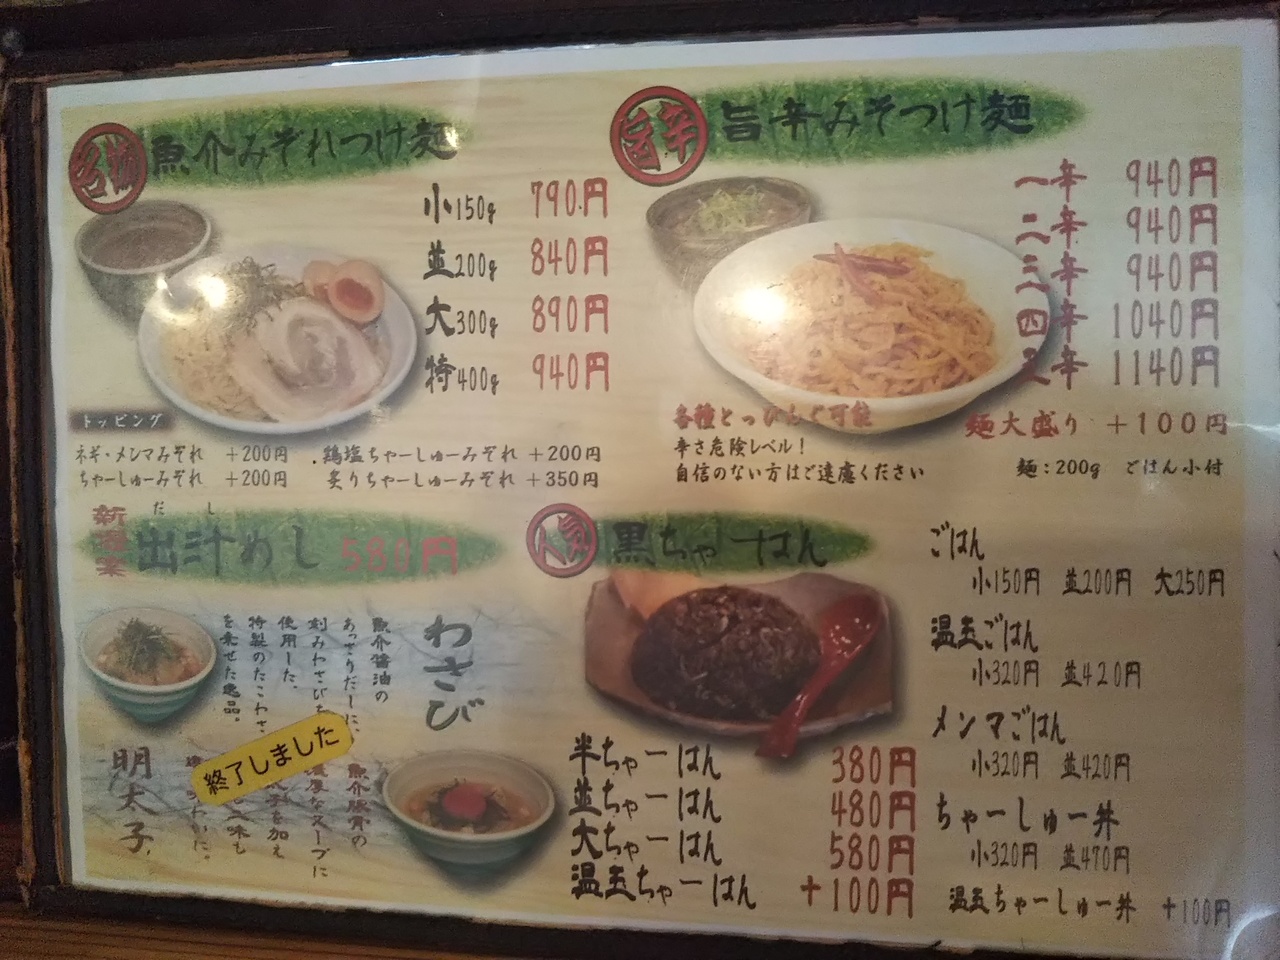 名物 魚介みぞれつけ麺
小150g 790円
並200g 840円
大300g 890円
特400g 940円
トッピング
ネギ・メンマみぞれ +200円
ちゃーしゅーみぞれ +200円
鶏塩ちゃーしゅーみぞれ +200円
炙りちゃーしゅーみぞれ +350円
旨辛 旨辛みそつけ麺
一辛 940円
二辛 940円
三辛 940円
四辛 1040円
五辛 1140円
各種とっぴんぐ可能
辛さ危険レベル!
自信のない方はご遠慮ください
麺大盛り +100円
麺:200g ごはん小付
だし
出汁めし 580円
わさび
魚介醤油の
あっさりだしに、
刻みわさびを
使用した、
特製のたこわさ
を乗せた逸品。
明太子
魚介豚骨の
濃厚なスープに
を加え
味も
終了しました
人気 黒ちゃーはん
半ちゃーはん 380円
並ちゃーはん 480円
大ちゃーはん 580円
温玉ちゃーはん +100円
ごはん
小150円 並200円 大250円
温玉ごはん
小320円 並420円
メンマごはん
小320円 並420円
ちゃーしゅー丼
小320円 並470円
温玉ちゃーしゅー丼 +100円